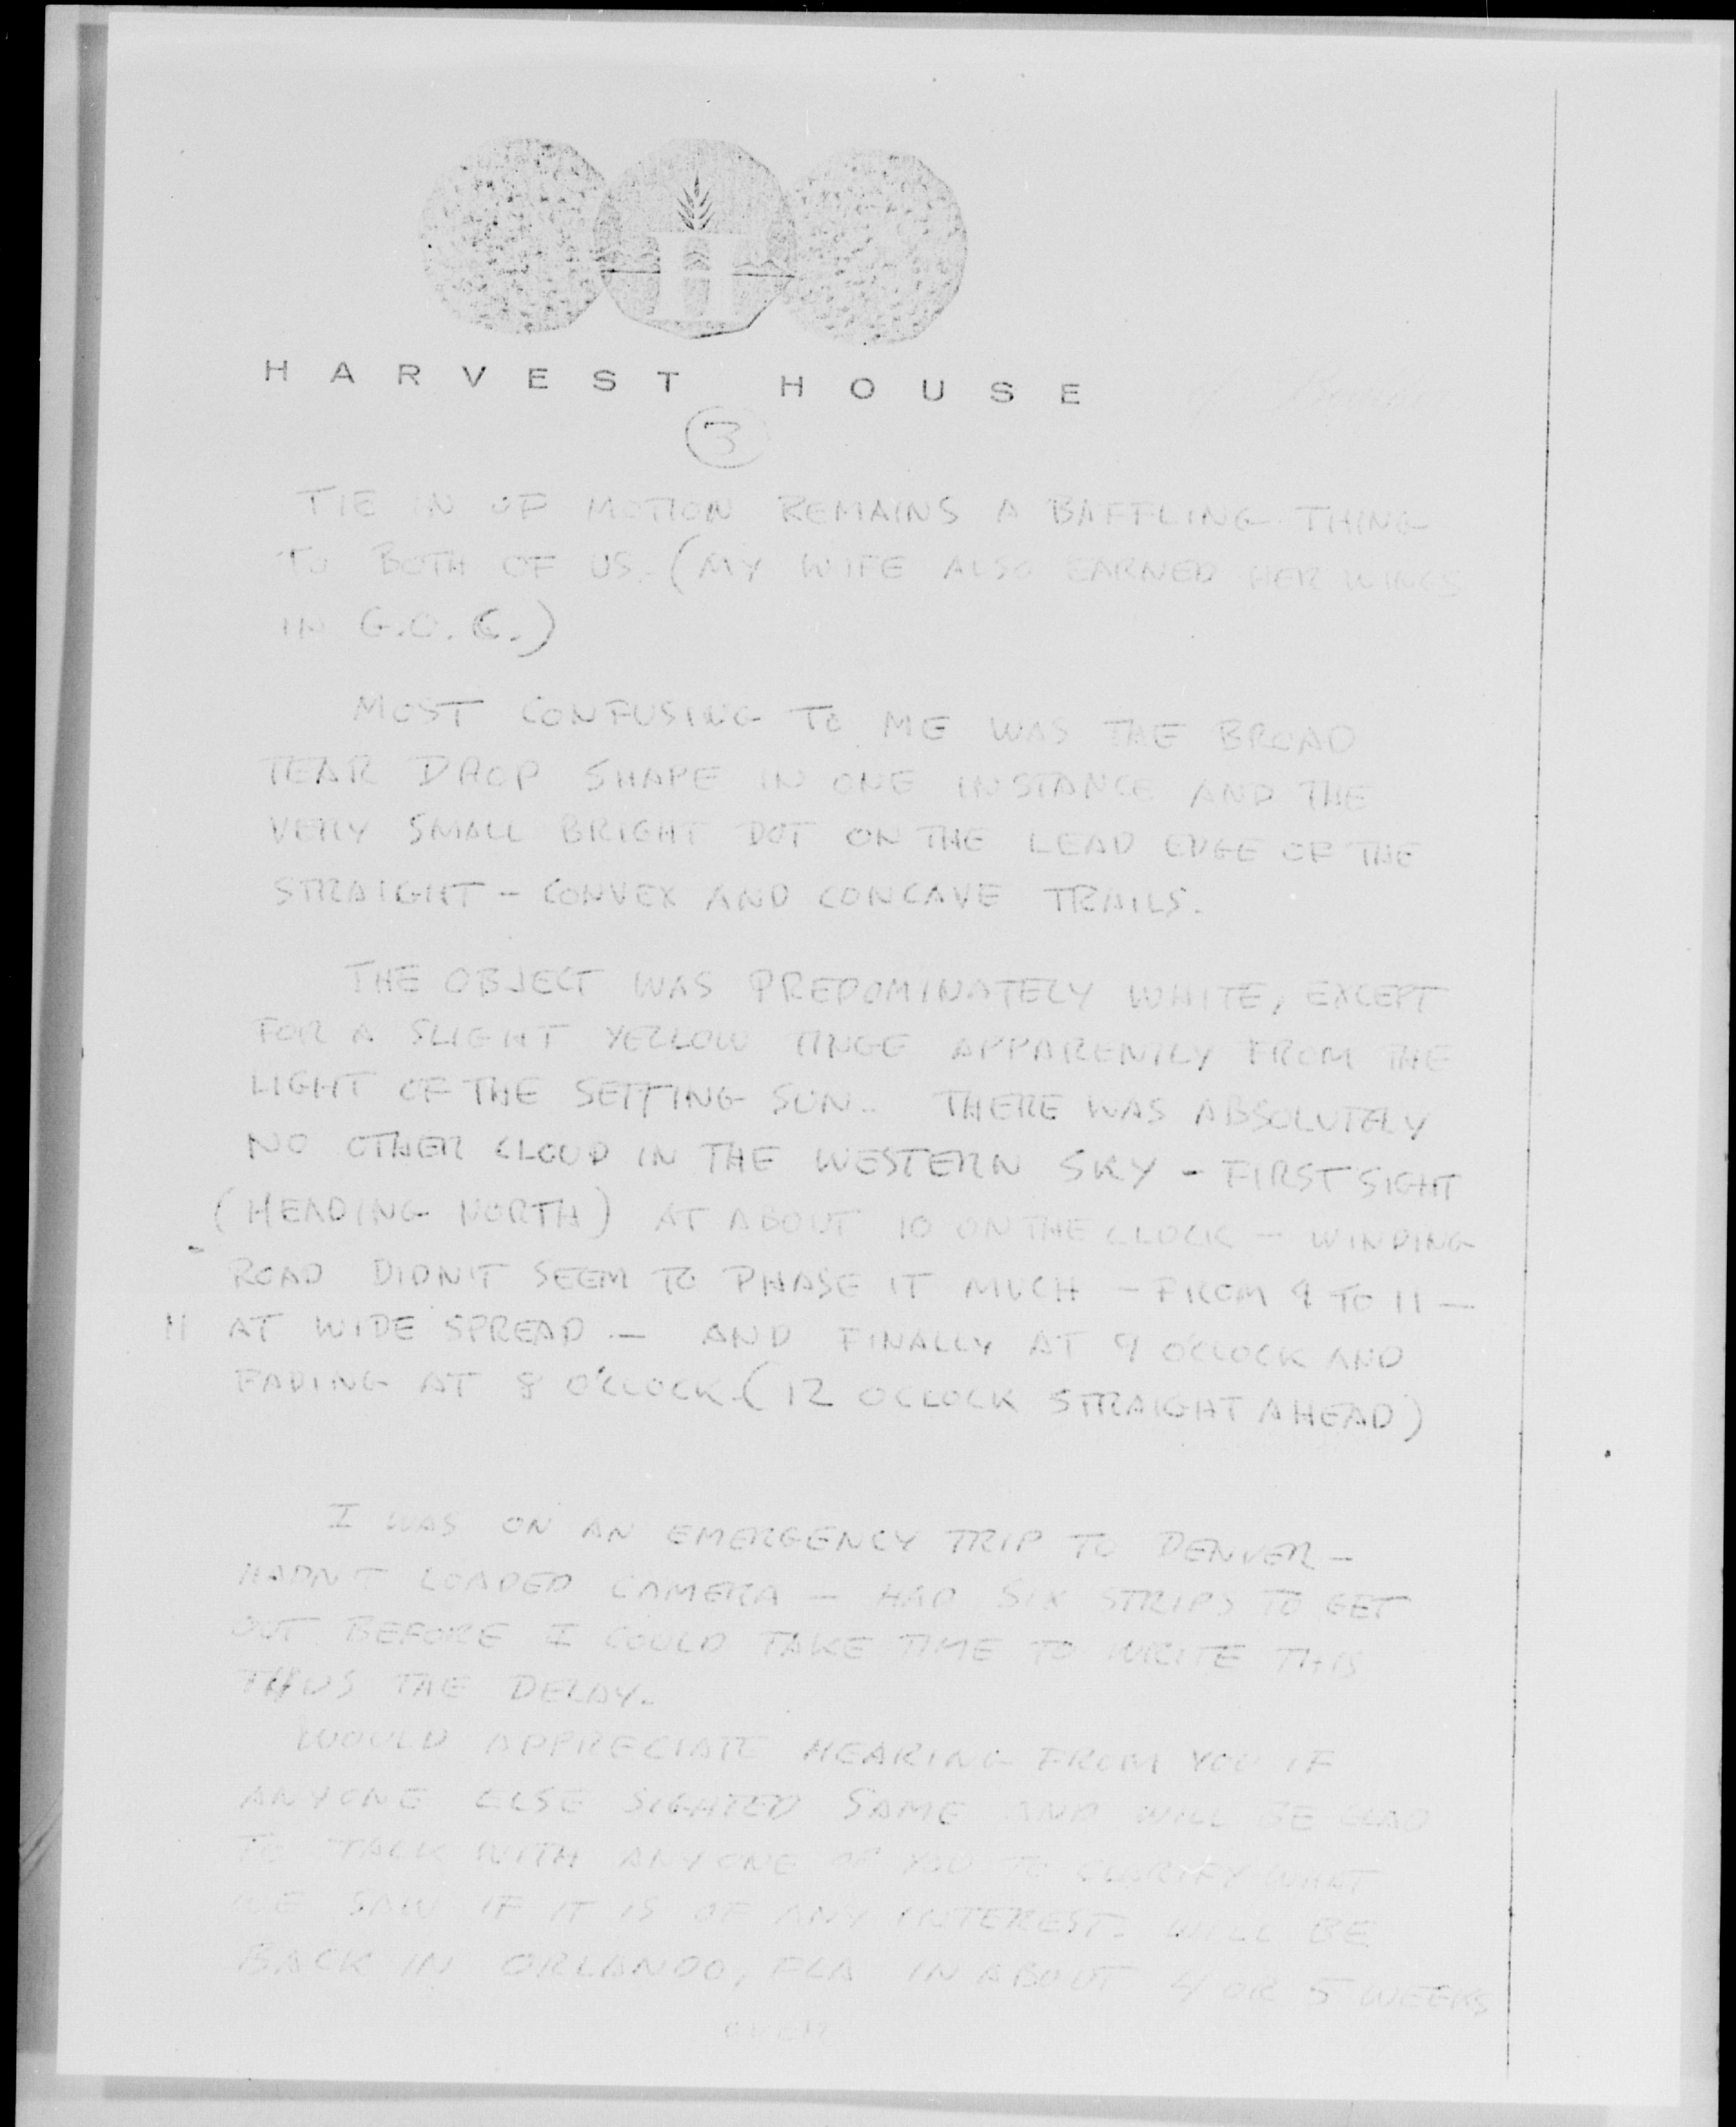 HARVEST HOUSE
3
TIE IN OF MOTION REMAINS A BAFFLING THING
TO BOTH OF US. (MY WIFE ALSO EARNED HER WINGS
IN G.O.C.)
MOST CONFUSING TO ME WAS THE BROAD
TEAR DROP SHAPE IN ONE INSTANCE AND THE
VERY SMALL BRIGHT DOT ON THE LEAD EDGE OF THE
STRAIGHT - CONVEX AND CONCAVE TRAILS.
THE OBJECT WAS PREDOMINATELY WHITE, EXCEPT
FOR A SLIGHT YELLOW TINGE APPARENTLY FROM THE
LIGHT OF THE SETTING SUN. THERE WAS ABSOLUTELY
NO OTHER CLOUD IN THE WESTERN SKY - FIRST SIGHT
(HEADING NORTH) AT ABOUT 10 ON THE CLOCK - WINDING
ROAD DIDN'T SEEM TO PHASE IT MUCH - FROM 9 TO 11 -
11 AT WIDE SPREAD - AND FINALLY AT 9 O'CLOCK AND
FADING AT 8 O'CLOCK (12 OCLOCK STRAIGHT AHEAD)
I WAS ON AN EMERGENCY TRIP TO DENVER -
HADN'T LOADED CAMERA - HAD SIX STRIPS TO GET
OUT BEFORE I COULD TAKE TIME TO WRITE THIS
THUS THE DELAY.
WOULD APPRECIATE HEARING FROM YOU IF
ANYONE ELSE SIGHTED SAME AND WILL BE GLAD
TO TALK WITH ANYONE OF YOU TO CLARIFY WHAT
WE SAW IF IT IS OF ANY INTEREST. WILL BE
BACK IN ORLANDO, FLA IN ABOUT 4 OR 5 WEEKS
OVER